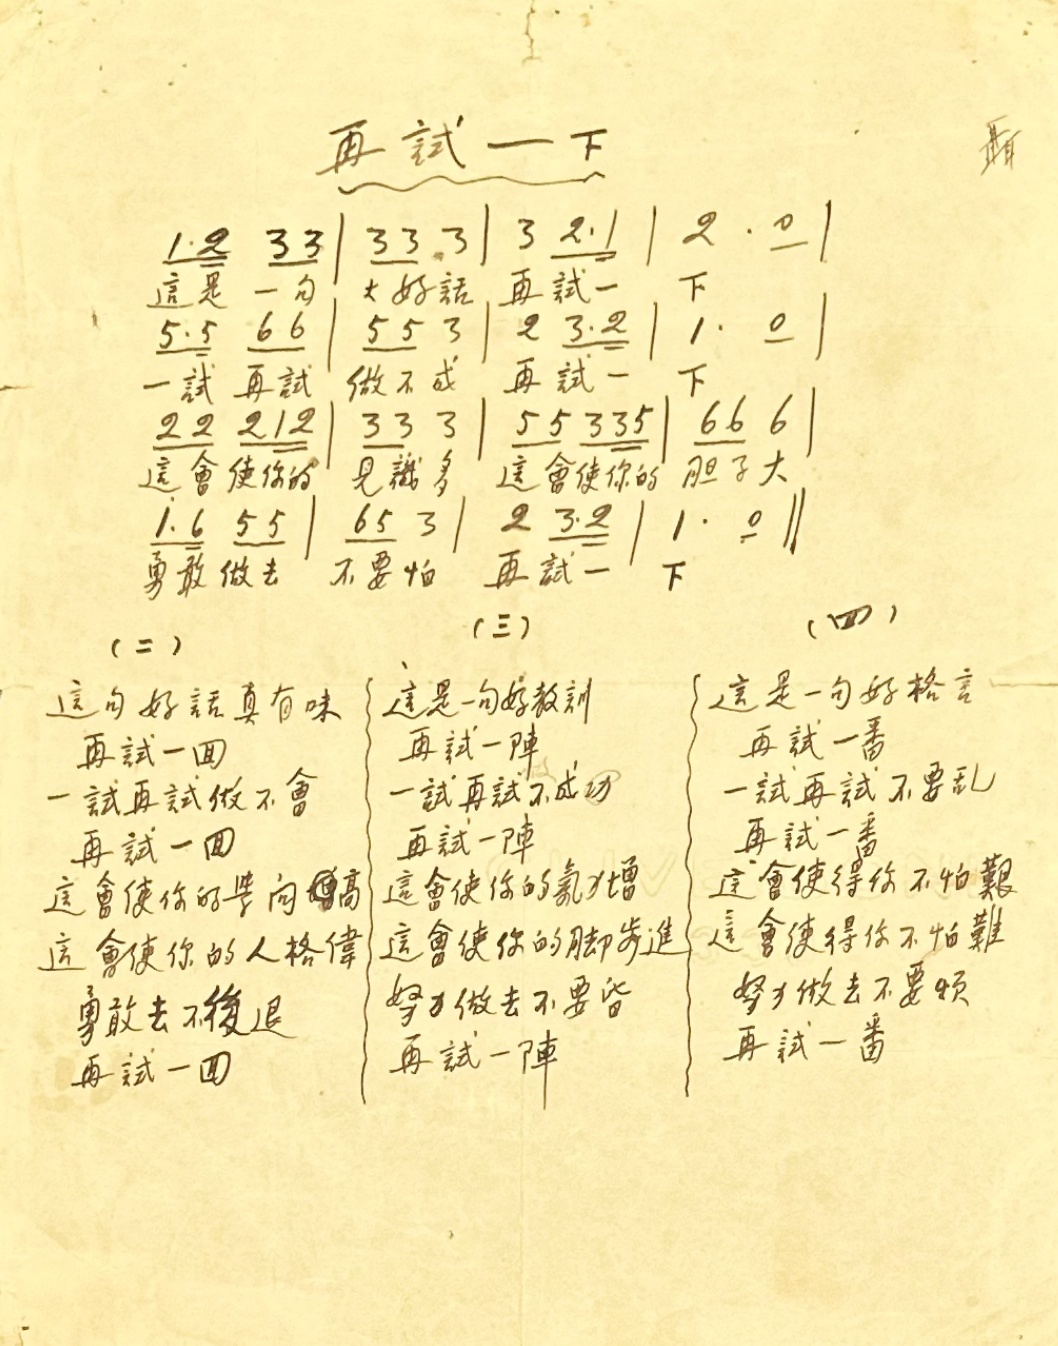 再試一下
1·2 33 | 33 3 | 3 2·1 | 2 · 0 |
這是 一句 大好話 再試一 下
5·5 66 | 55 3 | 2 3·2 | 1 · 0 |
一試 再試 做不成 再試一 下
22 212 | 33 3 | 55 335 | 66 6 |
這會使你的 見識多 這會使你的 胆子大
1·6 55 | 65 3 | 2 3·2 | 1 · 0 ‖
勇敢做去 不要怕 再試一 下
(二)
這句好話真有味
再試一回
一試再試做不會
再試一回
這會使你的學问高
這會使你的人格偉
勇敢去不後退
再試一回
(三)
這是一句好教訓
再試一陣
一試再試不成功
再試一陣
這會使你的氣力增
這會使你的脚步進
努力做去不要
再試一陣
(四)
這是一句好格言
再試一番
一試再試不要乱
再試一番
這會使得你不怕艱
這會使得你不怕難
努力做去不要煩
再試一番